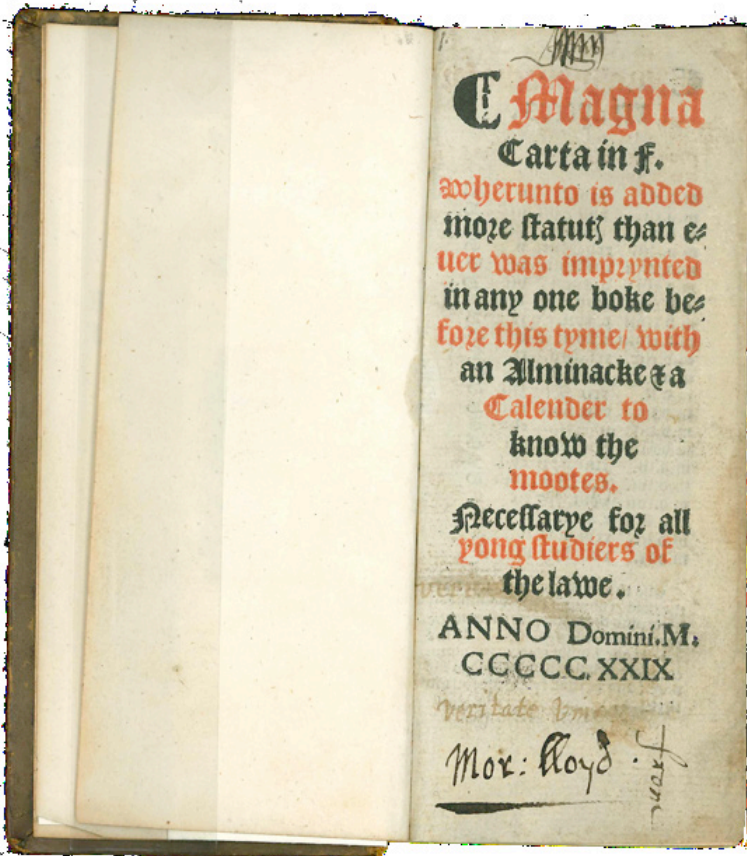 Magna
Carta in f.
wherunto is added
more statutꝫ than e⸗
uer was imprynted
in any one boke be⸗
fore this tyme/ with
an Alminacke & a
Calender to
know the
mootes.
Necessarye for all
yong studiers of
the lawe.
ANNO Domini.M.
CCCCC.XXIX
veritate
Mor: lloyd.